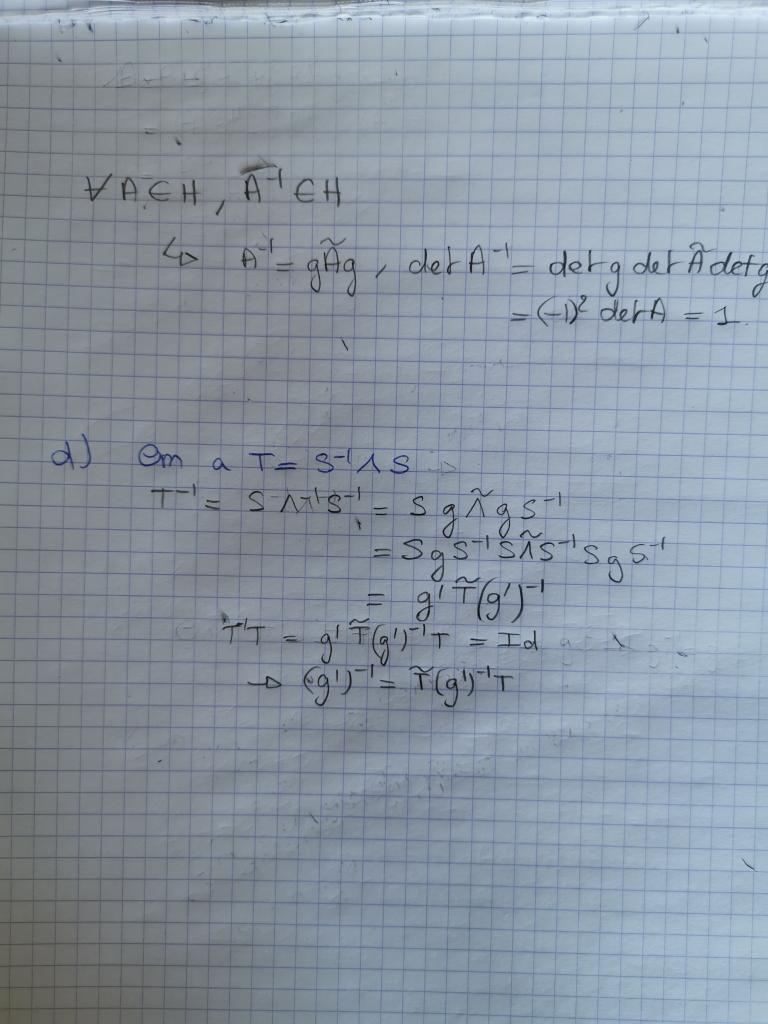 ∀A∈H, A⁻¹∈H
↳ A⁻¹ = gÃg, det A⁻¹ = det g det Ã det g
= (-1)² det A = 1
d) On a T = S⁻¹ΛS
T⁻¹ = SΛ⁻¹S⁻¹ = S g Λ̃ g S⁻¹
= S g S⁻¹ S Λ̃ S⁻¹ S g S⁻¹
= g' T̃ (g')⁻¹
T⁻¹T = g' T̃ (g')⁻¹ T = Id
→ (g')⁻¹ = T̃ (g')⁻¹ T